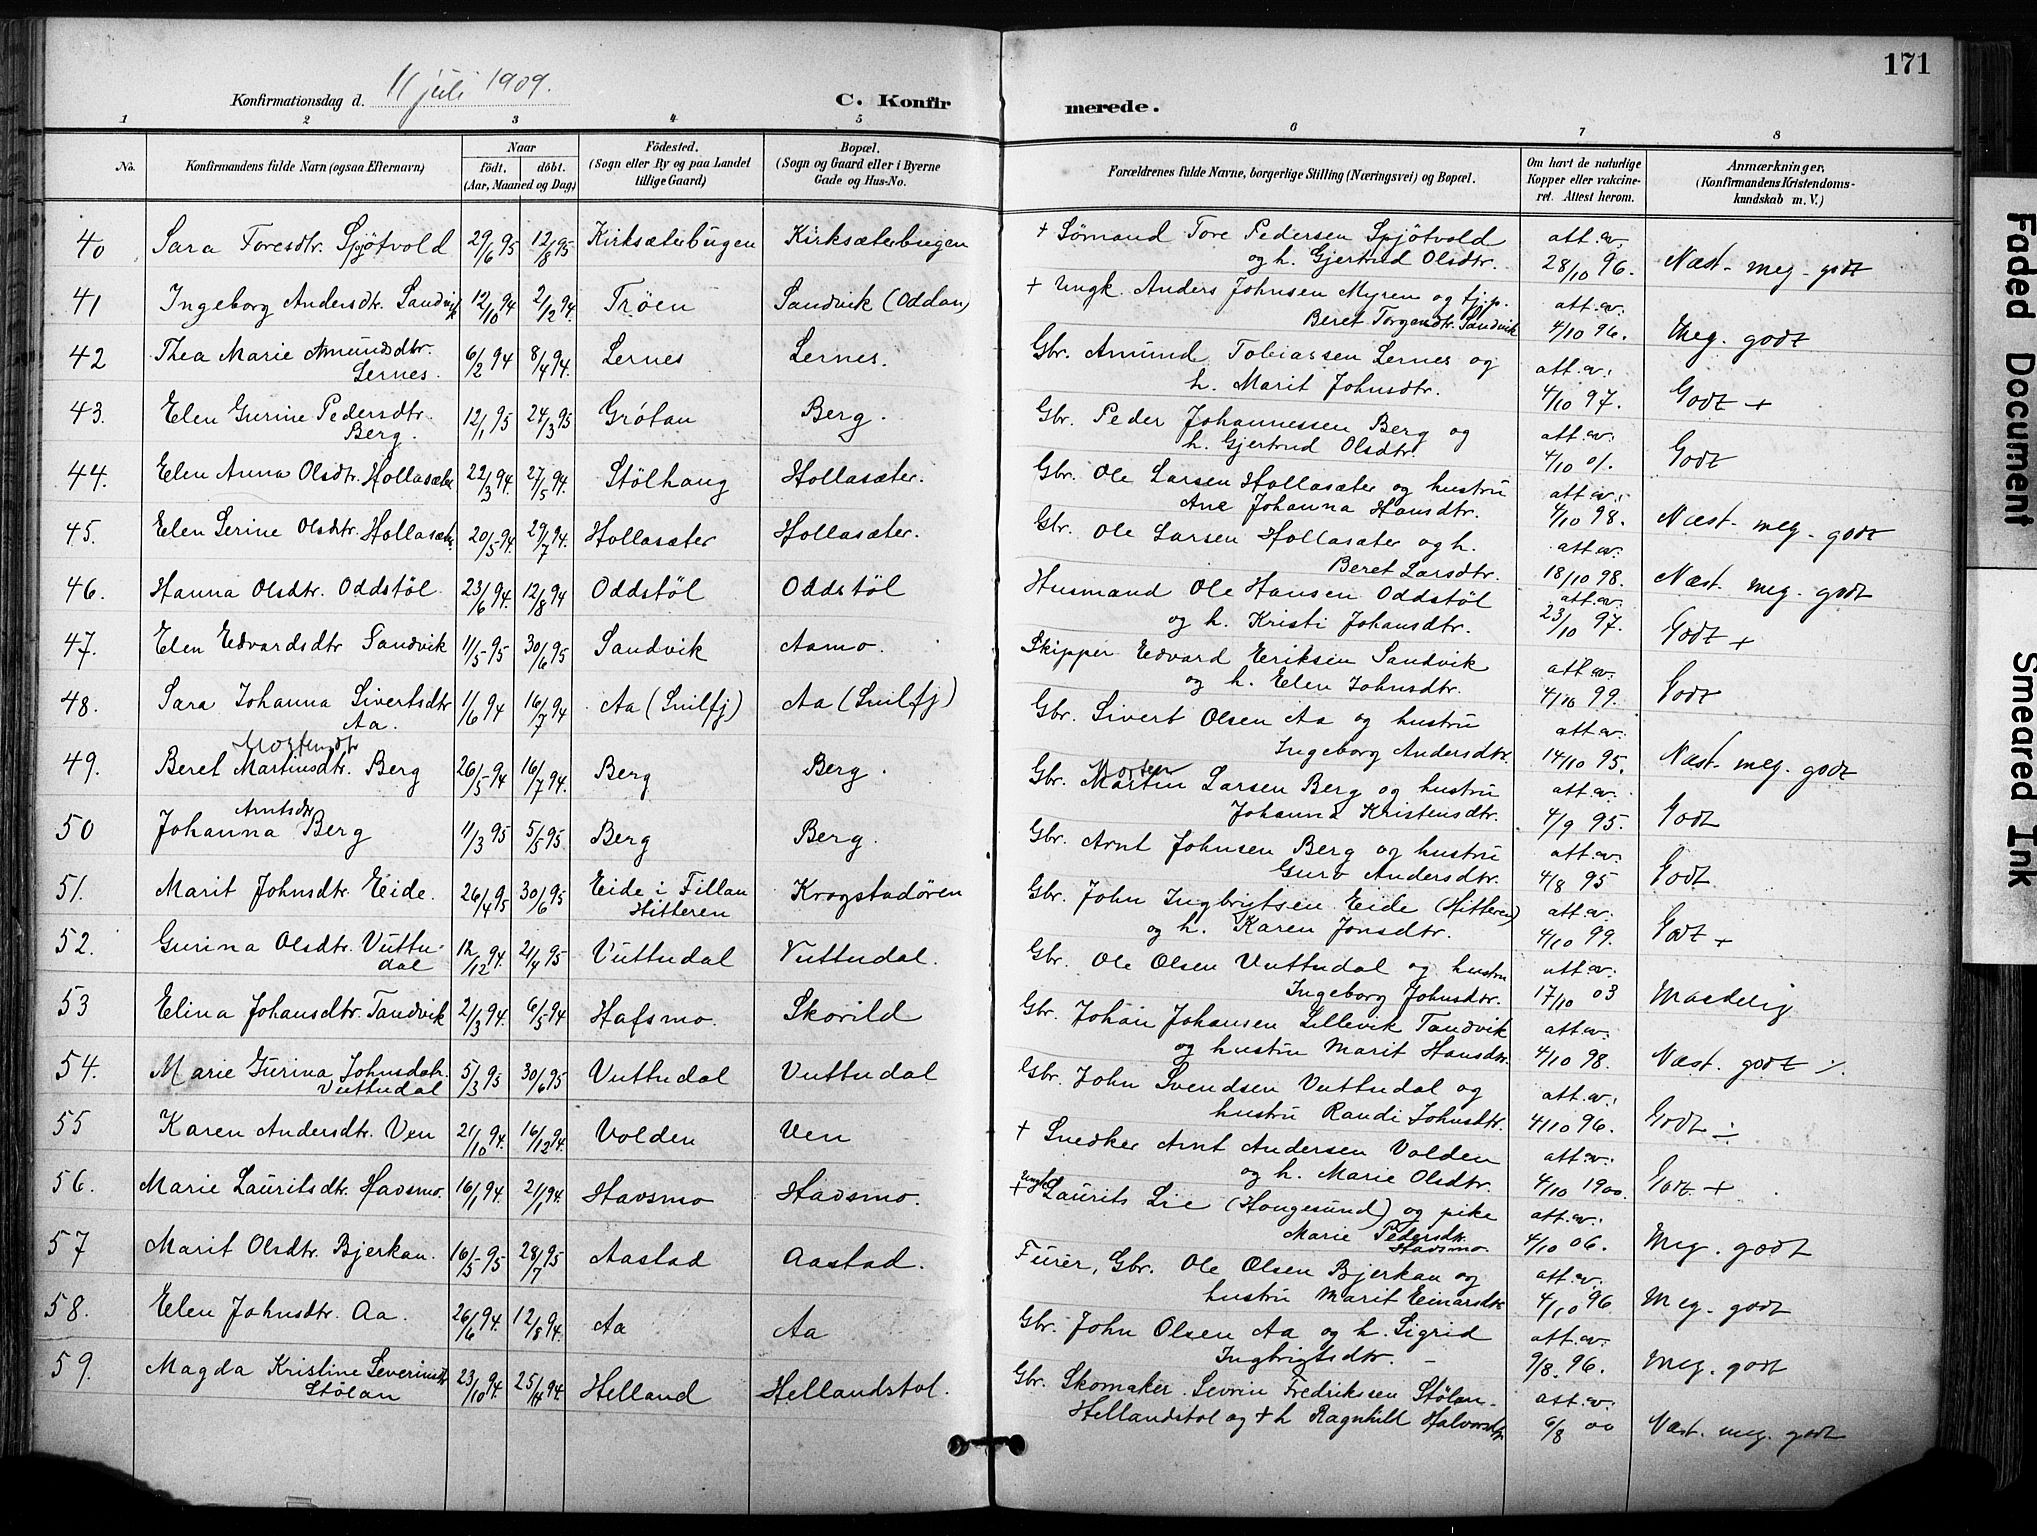 171
Konfirmationsdag d. 11 juli 1909.
C. Konfirmerede.
1 2 3 4 5 6 7 8
No.
Konfirmandens fulde Navn (ogsaa Efternavn)
Naar
födt. döbt.
(Aar, Maaned og Dag)
Födested.
(Sogn eller By og paa Landet
tillige Gaard)
Bopæl.
(Sogn og Gaard eller i Byerne
Gade og Hus-No.
Forældrenes fulde Navne, borgerlige Stilling (Næringsvei) og Bopæl.
Om havt de naturlige
Kopper eller vakcine-
ret. Attest herom.
Anmærkninger,
(Konfirmandens Kristendoms-
kundskab m. V.)
40 Sara Toresdtr. Spjötvold 29/6 95 12/8 95 Kirksæterbugen Kirksæterbugen + Sømand Tore Pedersen Spjötvold att. av.
og h. Gjertrud Olsdtr. 28/10 96. Næst. meg. godt
41 Ingeborg Andersdtr. Sandvik 12/10 94 2/12 94. Trøen Sandvik (Oddan) + Ungk. Anders Johnsen Myren og tj.p. att. av.
Beret Torgersdtr. Sandvik 4/10 96. Meg. godt
42 Thea Marie Amundsdtr. 6/2 94 8/4 94. Lernes Lernes. Gbr. Amund Tobiassen Lernes og att. av.
Lernes. h. Marit Johnsdtr. 4/10 97. Godt +
43. Elen Gurine Pedersdtr. 12/1 95 24/3 95 Grötan Berg. Gbr. Peder Johannessen Berg og att. av.
Berg. h. Gjertrud Olsdtr. 4/10 01. Godt
44. Elen Anna Olsdtr. Hollasæter 22/3 94. 27/5 94. Stölhaug Hollasæter. Gbr. Ole Larsen Hollasæter og hustru att. av.
Ane Johanna Hansdtr. 4/10 98. Næst. meg. godt
45. Elen Serine Olsdtr. Hollasæter 20/5 94. 29/7 94. Hollasæter Hollasæter. Gbr. Ole Larsen Hollasæter og h. att. av.
Beret Larsdtr. 18/10 98. Næst. meg. godt
46. Hanna Olsdtr. Oddstöl 23/6 94. 12/8 94 Oddstöl Oddstöl Husmand Ole Hansen Oddstöl att. av.
og h. Kristi Johansdtr. 23/10 97. Godt +
47. Elen Edvardsdtr Sandvik 11/5 95 30/6 95 Sandvik Aamo. Skipper Edvard Eriksen Sandvik att. av.
og h. Elen Johnsdtr. 4/10 99. Godt
48. Sara Johanna Sivertsdtr 1/6 94 16/7 94 Aa (Snilfj) Aa (Snilfj) Gbr. Sivert Olsen Aa og hustru att. av.
Aa. Ingeborg Andersdtr. 14/10 95. Næst. meg. godt
Mortensdtr
49. Beret Martinsdtr. Berg 26/5 94 16/7 94. Berg Berg. Gbr. Morten Martin Larsen Berg og hustru att. av.
Johanna Kristensdtr. 4/9 95. Godt
Arntsdtr
50 Johanna Berg 11/3 95 5/5 95. Berg Berg. Gbr. Arnt Johnsen Berg og hustru att. av.
Guro Andersdtr. 4/8 95 Godt.
51. Marit Johnsdtr. Eide. 26/4 95 30/6 95 Eide i Fillan Krogstadören Gbr. John Ingbrigtsen Eide (Hitteren) att. av.
Hitteren og h. Karen Jonsdtr. 4/10 99. Godt +
52. Gurina Olsdtr. Vuttu- 12/12 94. 21/4 95 Vuttudal Vuttudal. Gbr. Ole Olsen Vuttudal og hustru att. av.
dal Ingeborg Johnsdtr. 17/10 03 Maadelig
53 Elina Johansdtr. Tandvik 21/3 94. 6/5 94 Hafsmo. Skorild Gbr. Johan Johansen Lillevik Tandvik att. av.
og hustru Marit Hansdtr. 4/10 98. Næst. godt
54. Marie Gurina Johnsdtr. 5/3 95 30/6 95 Vuttudal Vuttudal Gbr. John Svendsen Vuttudal og att. av.
Vuttudal hustru Randi Johnsdtr. 4/10 96. Godt ÷
55 Karen Andersdtr. Ven 21/10 94. 16/12 94. Volden Ven + Snedker Arnt Andersen Volden att. av.
og h. Marie Olsdtr. 4/10 1900. Godt +
56. Marie Lauritsdtr. Havsmo. 16/1 94. 21/1 94. Havsmo Havsmo. + Ungk. Laurits Lie (Haugesund) og pike att. av.
Marie Pedersdtr. Havsmo 4/10 06. Meg. godt
57 Marit Olsdtr. Bjerkan. 16/5 95 28/7 95 Aastad Aastad. Furer, Gbr. Ole Olsen Bjerkan og att. av.
hustru Marit Einarsdtr 4/10 96 Meg. godt
58. Elen Johnsdtr. Aa. 26/6 94. 12/8 94. Aa Aa Gbr. John Olsen Aa og h. Sigrid att. av.
Ingbrigtsdtr. 9/8. 96. Meg. godt
59. Magda Kristine Severinsdtr 23/10 94. 25/11 94. Helland Hellandstol. Gbr. Skomaker. Sevrin Fredriksen Stölan- att. av.
Stölan Hellandstol og + h Ragnhild Halvorsdtr. 6/8 00 Næst. meg. godt
Faded Document
Smeared Ink